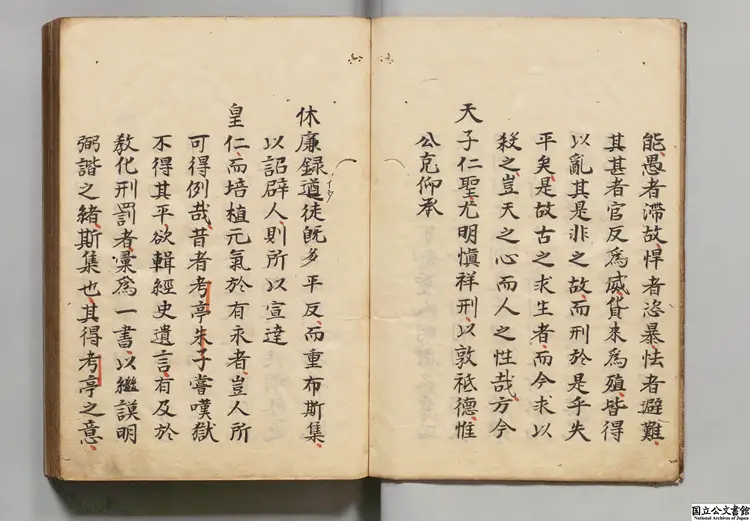 能愚者滯故悍者恣暴怯者避難
其甚者官反為威貨来為殖皆得
以亂其是非之故而刑於是乎失
平矣是故古之求生者而今求以
殺之豈天之心而人之性哉方今
天子仁聖尤明慎祥刑以敦祗德惟
公克仰承
休廉録道徒既多平反而重布斯集
以詔辟人則所以宣達
皇仁而培植元氣於有永者豈人所
可得例哉昔者考亭朱子嘗嘆獄
不得其平欲輯經史遺言有及於
教化刑罰者彙為一書以繼謨明
弼諧之緒斯集也其得考亭之意
国立公文書館
National Archives of Japan